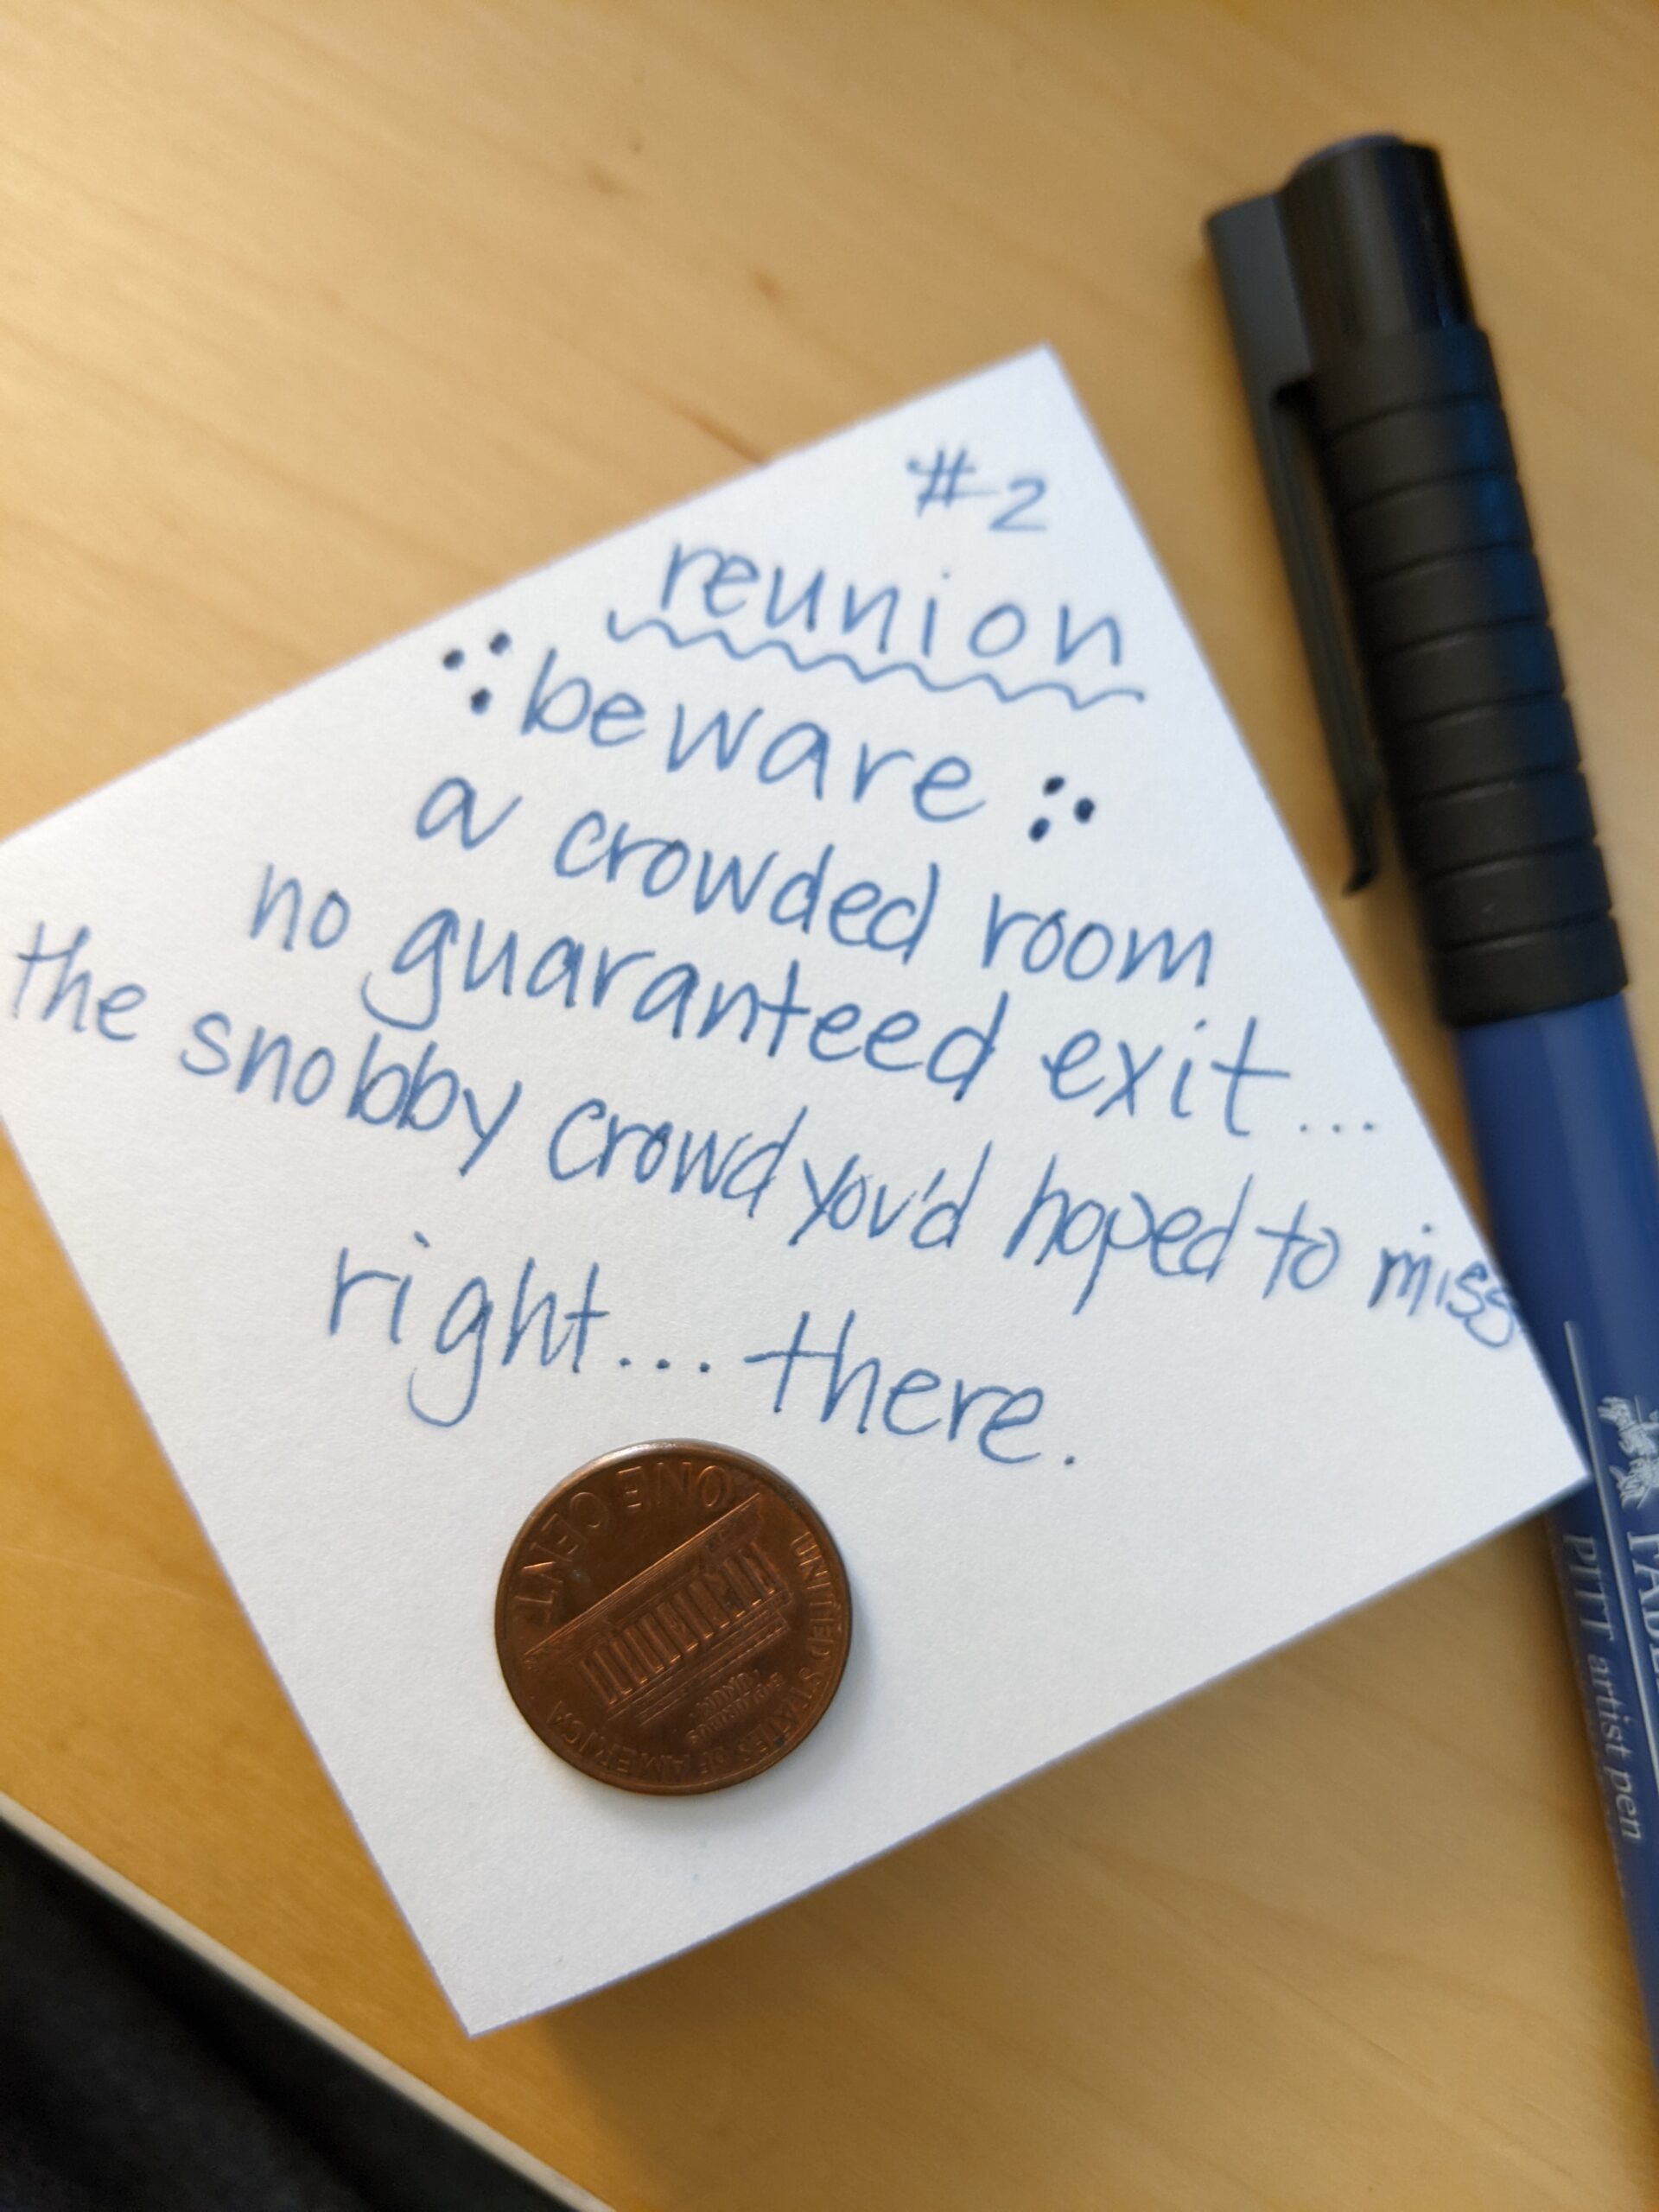 #2
reunion
beware
a crowded room
no guaranteed exit...
the snobby crowd you'd hoped to miss
right... there.
ONE CENT
UNITED STATES OF AMERICA
E·PLURIBUS
·UNUM·
PITT artist pen